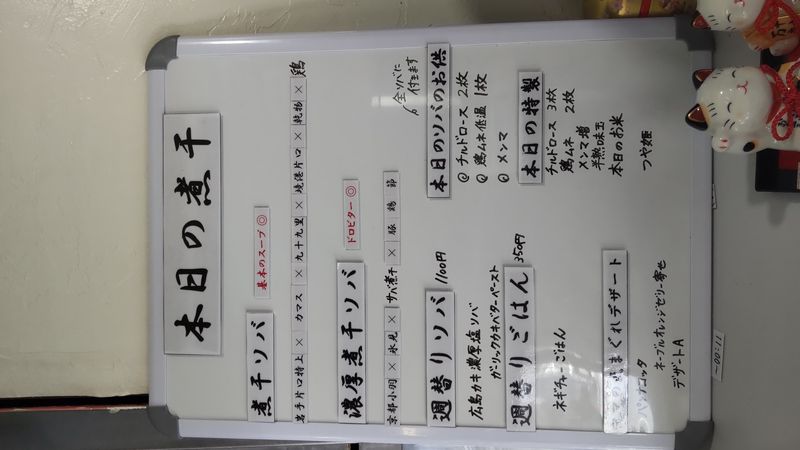 本日の煮干
煮干ソバ
基本のスープ◎
岩手片口特上×カマス×九十九里×境港片口×乾物×鶏
濃厚煮干ソバ
ドロビター◎
京都小羽×氷見×サバ煮干×豚 鶏 節
週替りソバ 1100円
広島カキ濃厚塩ソバ
ガーリックカキバターペースト
週替りごはん 350円
ネギチャーごはん
まぐれデザート
パンナコッタ
ネーブルオレンジゼリー寄せ
デザートA
本日のソバのお供
全ソバに
付きます
@ チルドロース 2枚
@ 鶏ムネ低温 1枚
@ メンマ
本日の特製
チルドロース 3枚
鶏ムネ 2枚
メンマ増
半熟味玉
本日のお米
つや姫
11:00~